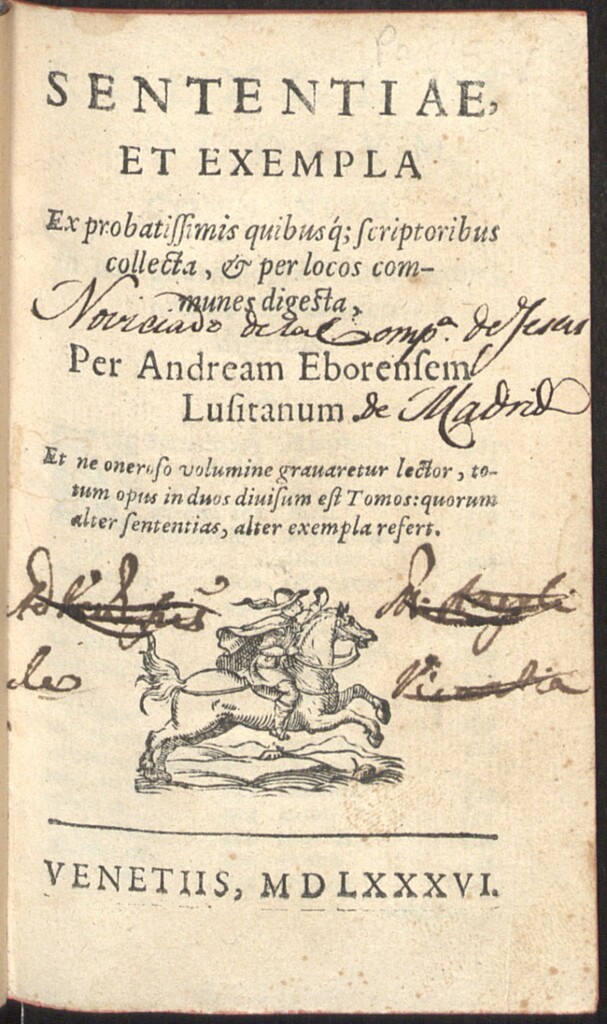 SENTENTIAE,
ET EXEMPLA
Ex probatissimis quibusq́; scriptoribus
collecta, & per locos com-
munes digesta,
Noviciado de la Comp.ª de Jesus
Per Andream Eborensem
Lusitanum de Madrid
Et ne oneroso volumine grauaretur lector, to-
tum opus in duos diuisum est Tomos: quorum
alter sententias, alter exempla refert.
VENETIIS, MDLXXXVI.